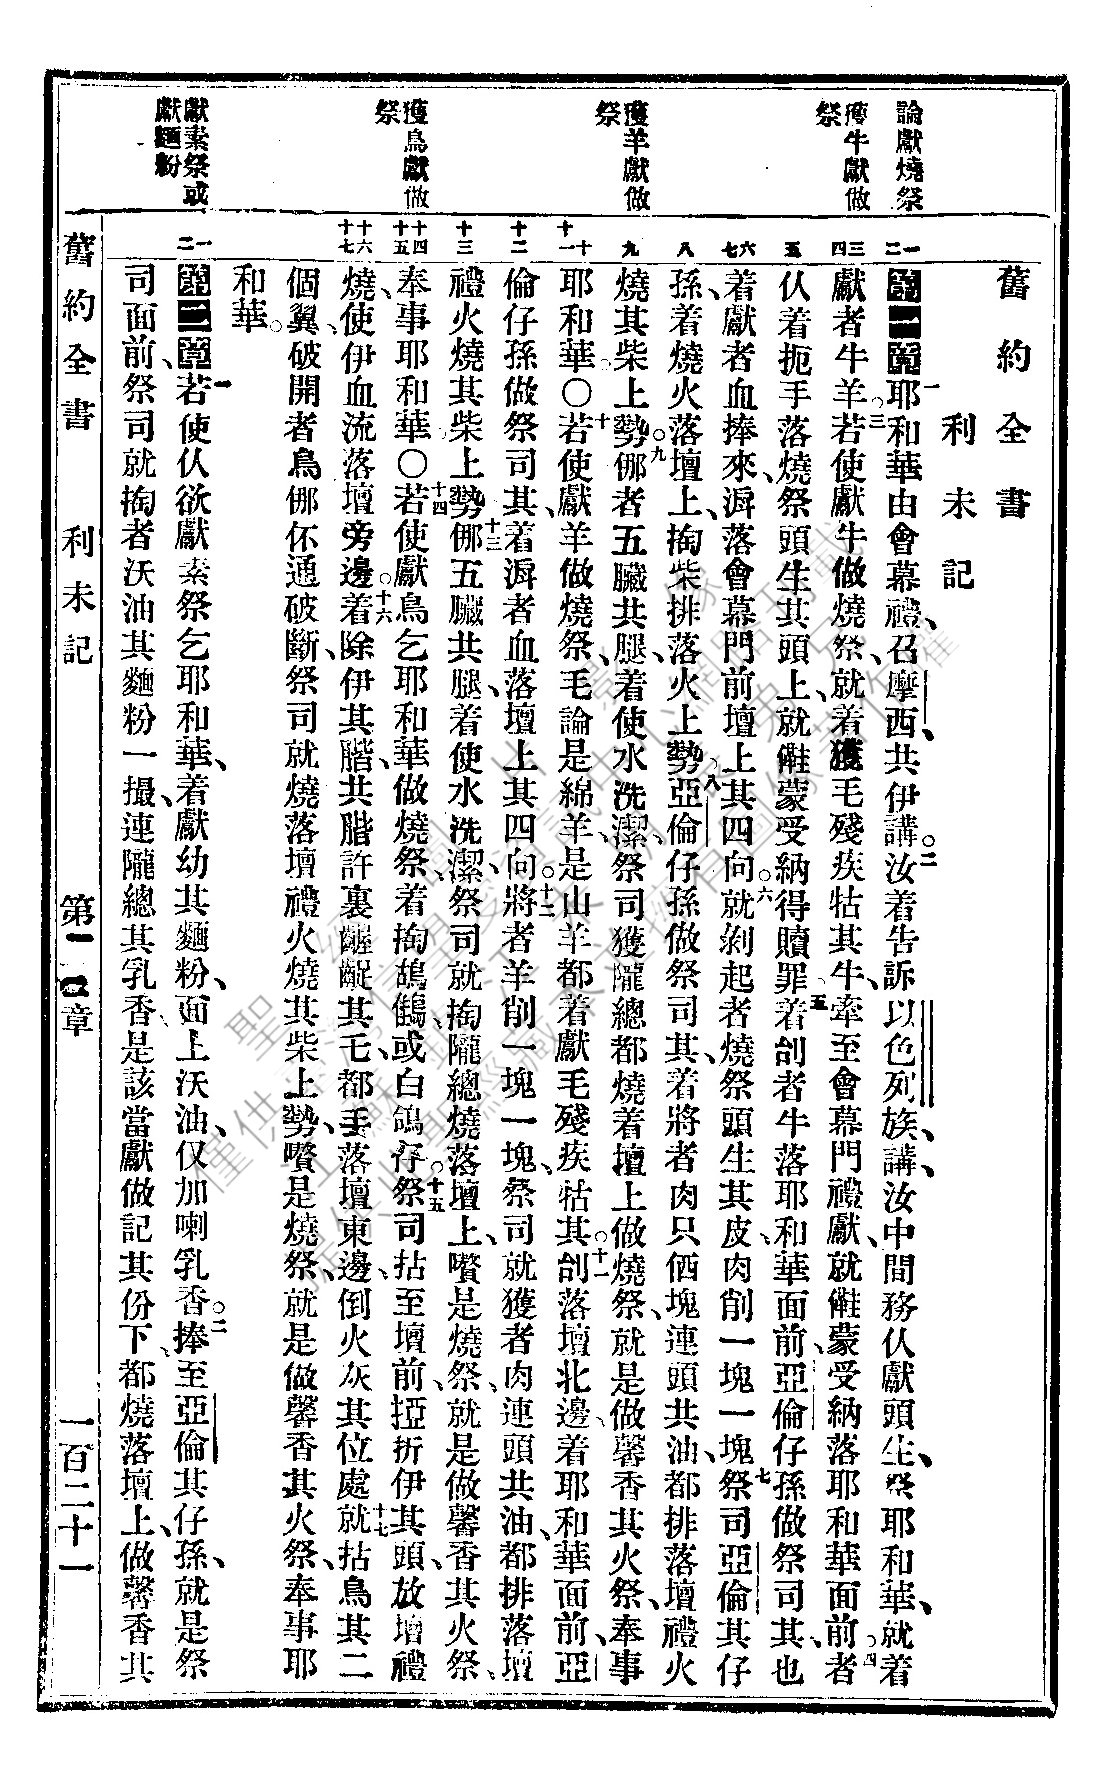 舊約全書
利未記
論獻燒祭
獲牛獻做祭
獲羊獻做祭
獲鳥獻做祭
獻素祭或獻麵粉
第一章一耶和華由會幕禮、召摩西、共伊講。二汝着告訴以色列族、講、汝中間務仈獻頭生、祭耶和華、就着
獻者牛羊。三若使獻牛做燒祭、就着獲毛殘疾牯其牛、牽至會幕門禮獻、就𠆧蒙受納落耶和華面前。四者
仈着扼手落燒祭頭生其頭上、就𠆧蒙受納得贖罪。五着刣者牛落耶和華面前、亞倫仔孫做祭司其、也
着獻者血捧來、淍落會幕門前壇上其四向。六就剝起者燒祭頭生其皮、肉削一塊一塊。七祭司亞倫其仔
孫、着燒火落壇上、掏柴排落火上勢。八亞倫仔孫做祭司其、着將者肉只価塊連頭共油、都排落壇禮火
燒其柴上勢。九𠲥者五臟共腿、着使水洗潔、祭司獲隴總都燒着壇上做燒祭、就是做馨香其火祭、奉事
耶和華。〇十若使獻羊做燒祭、毛論是綿羊、是山羊、都着獻毛殘疾牯其。十一刣落壇北邊、着耶和華面前、亞
倫仔孫做祭司其、着淍者血落壇上其四向。十二將者羊削一塊一塊、祭司就獲者肉連頭共油、都排落壇
禮火燒其柴上勢。十三𠲥五臟共腿、着使水洗潔、祭司就掏隴總燒落壇上、嚽是燒祭、就是做馨香其火祭、
奉事耶和華。〇十四若使獻鳥乞耶和華做燒祭、着掏鴣鶴、或白鴿仔。十五祭司拈至壇前、挜折伊其頭、放壇禮
燒、使伊血流落壇旁邊。十六着除伊其䐛、共䐛許裏齷齪其乇、都丟落壇東邊、倒火灰其位處。十七就拈鳥其二
個翼、破開者鳥、𠲥伓通破斷、祭司就燒落壇禮火燒其柴上勢、嚽是燒祭、就是做馨香其火祭、奉事耶
和華。
第二章一若使仈欲獻素祭乞耶和華、着獻幼其麵粉、面上沃油、仅加喇乳香。二捧至亞倫其仔孫、就是祭
司面前、祭司就掏者沃油其麵粉一撮、連隴總其乳香、是該當獻做記其份下、都燒落壇上、做馨香其
舊約全書 利未記 第一二章 一百二十一